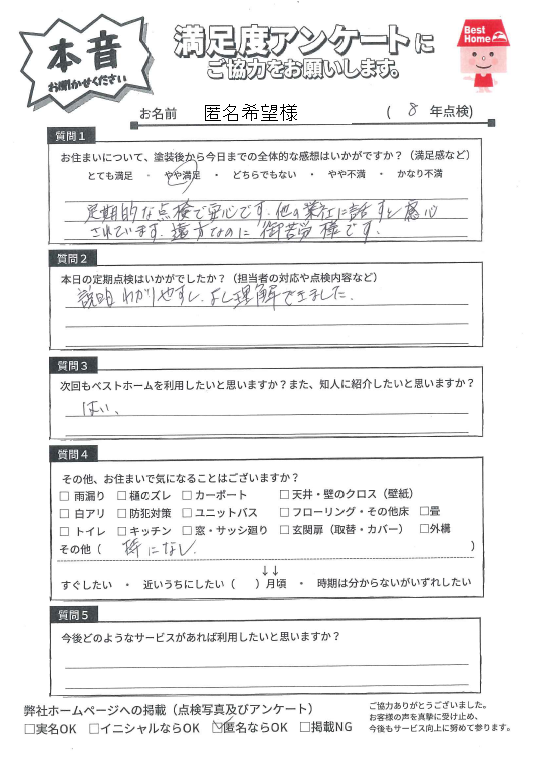 本音
お聞かせください
満足度アンケートに
ご協力をお願いします。
Best
Home
お名前 匿名希望様 ( 8 年点検)
質問1
お住まいについて、塗装後から今日までの全体的な感想はいかがですか？（満足感など）
とても満足 ・ やや満足 ・ どちらでもない ・ やや不満 ・ かなり不満
定期的な点検で安心です。他の業社に話すと感心
されています。遠方なのに御苦労様です。
質問2
本日の定期点検はいかがでしたか？（担当者の対応や点検内容など）
説明わかりやすし、よし理解できました。
質問3
次回もベストホームを利用したいと思いますか？また、知人に紹介したいと思いますか？
はい、
質問4
その他、お住まいで気になることはございますか？
□ 雨漏り □ 樋のズレ □ カーポート □ 天井・壁のクロス（壁紙）
□ 白アリ □ 防犯対策 □ ユニットバス □ フローリング・その他床 □畳
□ トイレ □ キッチン □ 窓・サッシ廻り □ 玄関扉（取替・カバー） □外構
その他（ 特になし. ）
↓↓
すぐしたい ・ 近いうちにしたい（ ）月頃 ・ 時期は分からないがいずれしたい
質問5
今後どのようなサービスがあれば利用したいと思いますか？
弊社ホームページへの掲載（点検写真及びアンケート）
□実名OK □イニシャルならOK ☑匿名ならOK □掲載NG
ご協力ありがとうございました。
お客様の声を真摯に受け止め、
今後もサービス向上に努めて参ります。